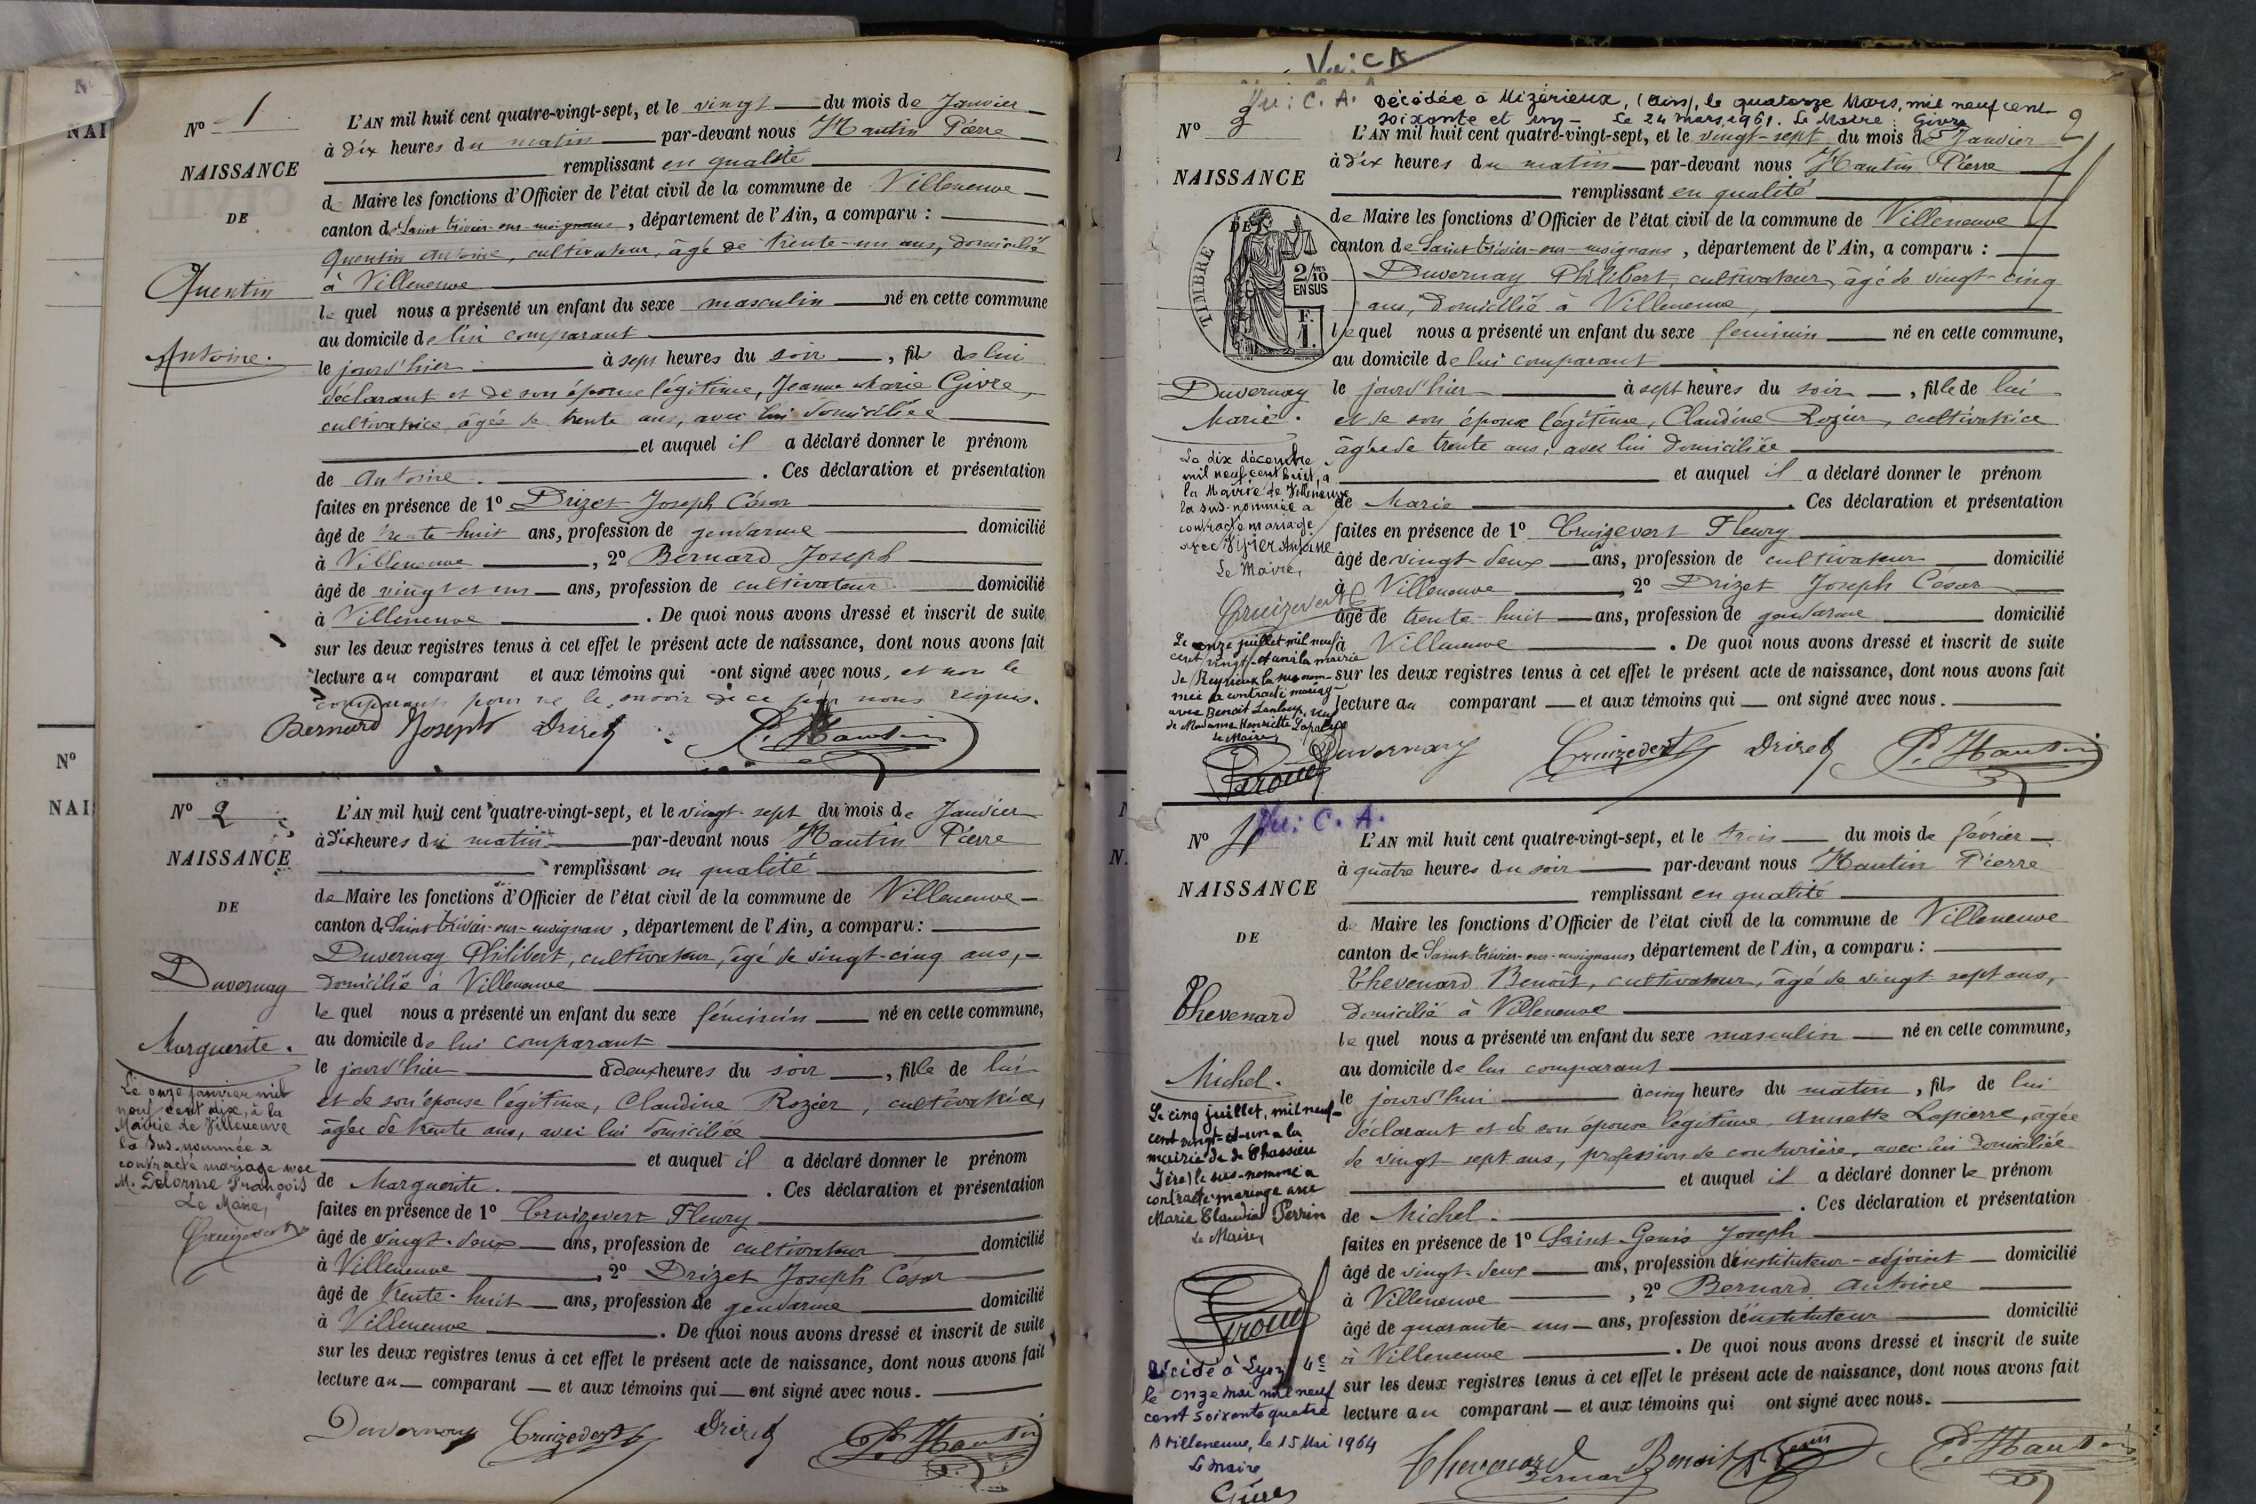 Nº 1
NAISSANCE
DE
Quentin
Antoine.
L'AN mil huit cent quatre-vingt-sept, et le vingt du mois de Janvier
à dix heures du matin par-devant nous Hautin Pierre
remplissant en qualité
de Maire les fonctions d'Officier de l'état civil de la commune de Villeneuve
canton de Saint trivier-sur-moignans, département de l'Ain, a comparu :
Quentin Antoine, cultivateur, âgé de trente-un ans, domicilié
à Villeneuve
lequel nous a présenté un enfant du sexe masculin né en cette commune
au domicile de lui comparant
le jourd'hier à sept heures du soir, fils de lui
déclarant et de son épouse légitime, Jeanne Marie Givre,
cultivatrice âgée de trente ans, avec lui domiciliée
et auquel il a déclaré donner le prénom
de Antoine. Ces déclaration et présentation
faites en présence de 1º Drizet Joseph César
âgé de trente-huit ans, profession de gendarme domicilié
à Villeneuve, 2º Bernard Joseph
âgé de vingt et un ans, profession de cultivateur domicilié
à Villeneuve. De quoi nous avons dressé et inscrit de suite
sur les deux registres tenus à cet effet le présent acte de naissance, dont nous avons fait
lecture au comparant et aux témoins qui ont signé avec nous, et non le
comparant pour ne le savoir de ce par nous requis.
Bernard Joseph Drizet P. Hautin
Nº 2
NAISSANCE
DE
Duvernay
Marguerite.
Le onze janvier mil
neuf cent dix, à la
Mairie de Villeneuve
la sus-nommée a
contracté mariage avec
M. Delorme François
Le Maire,
Cruizevert
L'AN mil huit cent quatre-vingt-sept, et le vingt-sept du mois de Janvier
à dix heures du matin par-devant nous Hautin Pierre
remplissant en qualité
de Maire les fonctions d'Officier de l'état civil de la commune de Villeneuve
canton de Saint trivier-sur-moignans, département de l'Ain, a comparu :
Duvernay Philibert, cultivateur, âgé de vingt-cinq ans,
domicilié à Villeneuve
lequel nous a présenté un enfant du sexe féminin né en cette commune,
au domicile de lui comparant
le jourd'hier à deux heures du soir, fille de lui
et de son épouse légitime, Claudine Rozier, cultivatrice,
âgée de trente ans, avec lui domiciliée
et auquel il a déclaré donner le prénom
de Marguerite. Ces déclaration et présentation
faites en présence de 1º Cruizevert Fleury
âgé de vingt-deux ans, profession de cultivateur domicilié
à Villeneuve, 2º Drizet Joseph César
âgé de trente-huit ans, profession de gendarme domicilié
à Villeneuve. De quoi nous avons dressé et inscrit de suite
sur les deux registres tenus à cet effet le présent acte de naissance, dont nous avons fait
lecture au comparant et aux témoins qui ont signé avec nous.
Duvernay Cruizevert Drizet P. Hautin
Vu : C A
Vu : C. A. Décédée à Mizérieux, (Ain), le quatorze Mars, mil neuf cent
soixante et un - Le 24 mars 1961. Le Maire : Givre
2
Nº 3
NAISSANCE
DE
TIMBRE
2/10 EN SUS
F. 1.
Duvernay
Marie.
Le dix décembre
mil neuf cent huit, à
la Mairie de Villeneuve
la sus-nommée a
contracté mariage
avec Vifier Antoine
Le Maire,
Cruizevert
Le onze juillet mil neuf
cent vingt-et-un à la mairie
de Reyrieux la sus nom-
mée a contracté mariage
avec Benoit
de Madame Henriette
Le Maire
L'AN mil huit cent quatre-vingt-sept, et le vingt-sept du mois de Janvier
à dix heures du matin par-devant nous Hautin Pierre
remplissant en qualité
de Maire les fonctions d'Officier de l'état civil de la commune de Villeneuve
canton de Saint-trivier-sur-moignans, département de l'Ain, a comparu :
Duvernay Philibert, cultivateur, âgé de vingt-cinq
ans, domicilié à Villeneuve,
lequel nous a présenté un enfant du sexe féminin né en cette commune,
au domicile de lui comparant
le jourd'hier à sept heures du soir, fille de lui
et de son épouse légitime, Claudine Rozier, cultivatrice
âgée de trente ans, avec lui domiciliée
et auquel il a déclaré donner le prénom
de Marie. Ces déclaration et présentation
faites en présence de 1º Cruizevert Fleury
âgé de vingt deux ans, profession de cultivateur domicilié
à Villeneuve, 2º Drizet Joseph César
âgé de trente-huit ans, profession de gendarme domicilié
à Villeneuve. De quoi nous avons dressé et inscrit de suite
sur les deux registres tenus à cet effet le présent acte de naissance, dont nous avons fait
lecture au comparant et aux témoins qui ont signé avec nous.
Duvernay Cruizevert Drizet P. Hautin
Vu : C. A.
Nº 4
NAISSANCE
DE
Thevenard
Michel.
Le cinq juillet, mil neuf-
cent vingt-et-un a la
mairie de de Chassieu
Isère) le sus-nommé a
contracté mariage avec
Marie Claudia Perrin
Le Maire,
Décédé à Lyon 4e
le onze mai mil neuf
cent soixante quatre
A Villeneuve, le 15 Mai 1964
Le maire
Givre
L'AN mil huit cent quatre-vingt-sept, et le trois du mois de février
à quatre heures du soir par-devant nous Hautin Pierre
remplissant en qualité
de Maire les fonctions d'Officier de l'état civil de la commune de Villeneuve
canton de Saint-trivier-sur-moignans, département de l'Ain, a comparu :
Thevenard Benoit, cultivateur, âgé de vingt sept ans,
domicilié à Villeneuve
lequel nous a présenté un enfant du sexe masculin né en cette commune,
au domicile de lui comparant
le jourd'hui à cinq heures du matin, fils de lui
déclarant et de son épouse légitime, Annette Lapierre, âgée
de vingt-sept ans, profession de couturière, avec lui domiciliée
et auquel il a déclaré donner le prénom
de Michel. Ces déclaration et présentation
faites en présence de 1º Saint-Genis Joseph
âgé de vingt-deux ans, profession d'instituteur-adjoint domicilié
à Villeneuve, 2º Bernard Antoine
âgé de quarante-un ans, profession d'instituteur domicilié
à Villeneuve. De quoi nous avons dressé et inscrit de suite
sur les deux registres tenus à cet effet le présent acte de naissance, dont nous avons fait
lecture au comparant et aux témoins qui ont signé avec nous.
Thevenard Benoit P. Hautin
Bernard